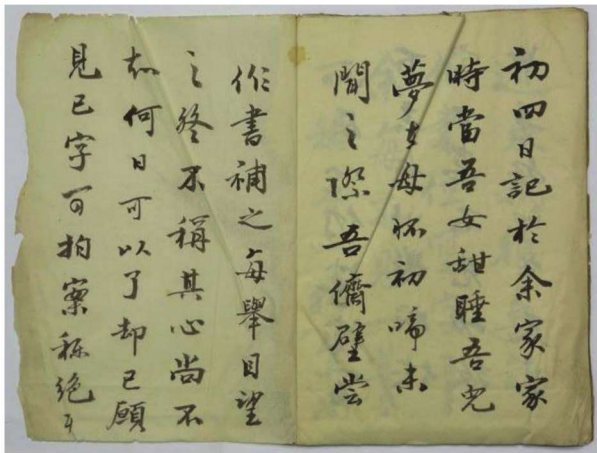 初四日記於余家家
時當吾女甜睡吾兒
夢去母怀初啼未
聞之際吾儕壁尝
作書補之每舉目望
之終不稱其心尚不
知何日可以了却已願
見已字可拍案称絕